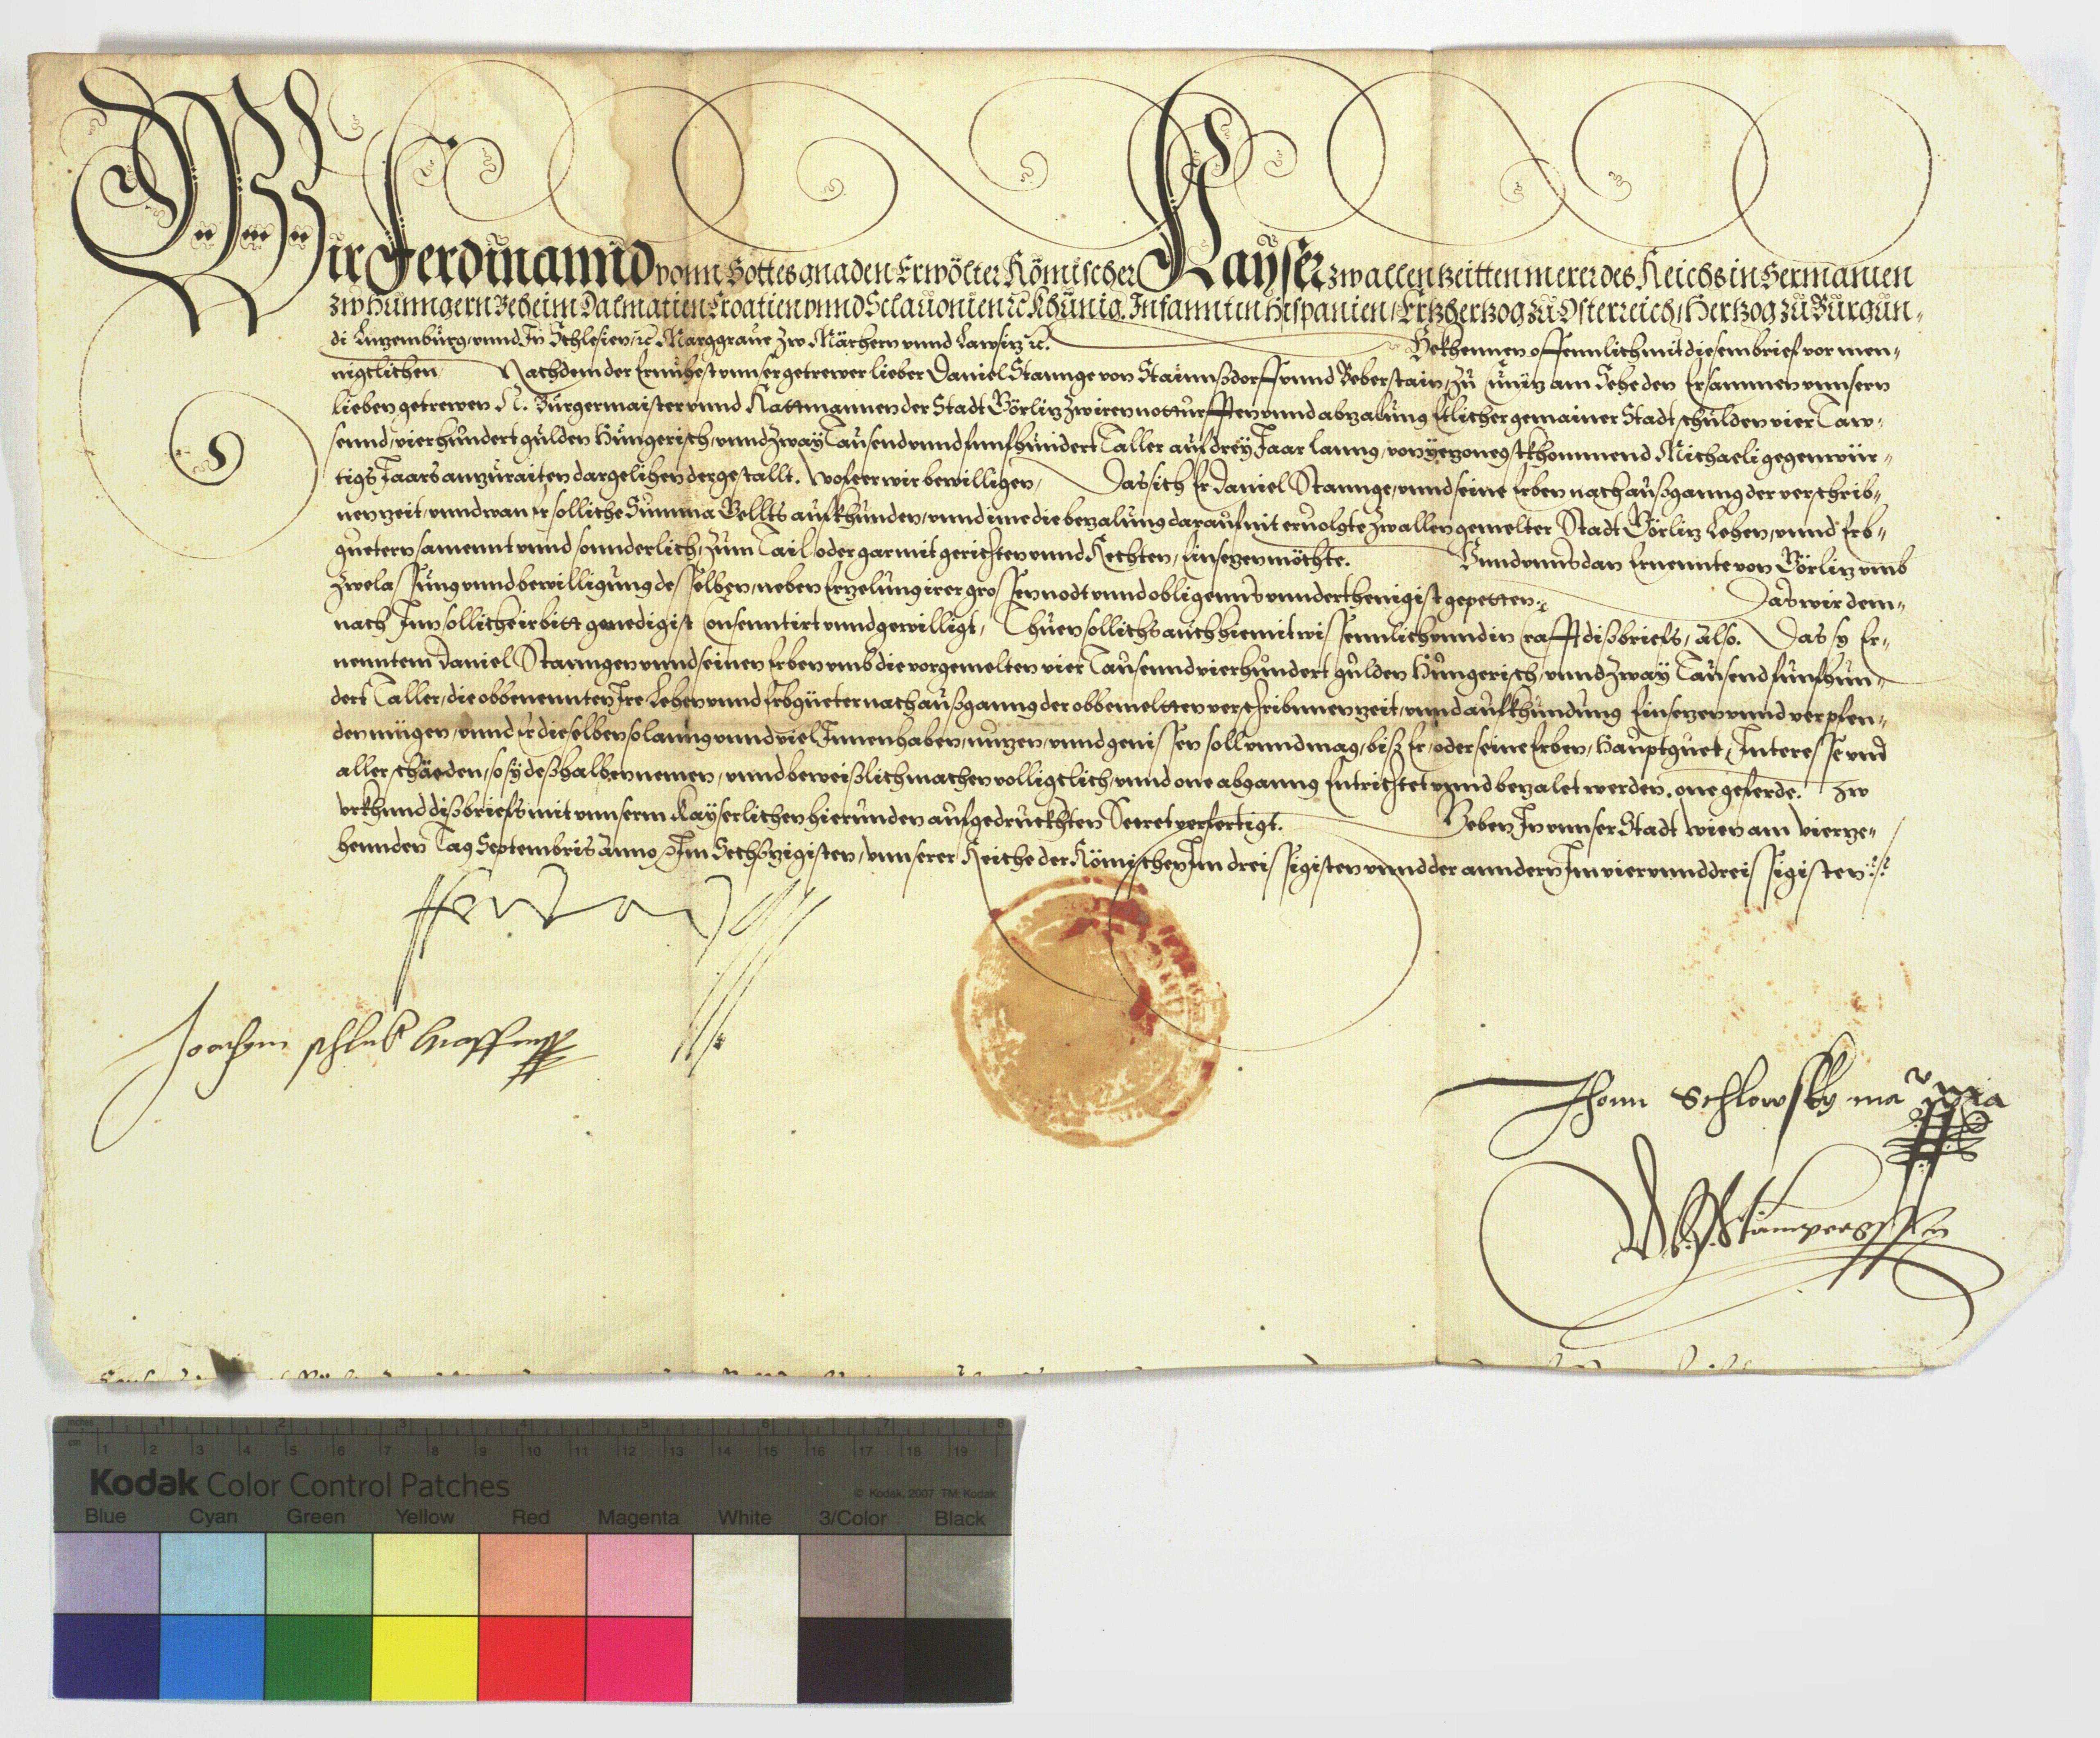 Wir Ferdinannd vonn Gottes gnaden Erwölter Römischer Kayser zw allen tzeitten merer des Reichs in Germanien
zw Hunngern Beheim Dalmatien Croatien vnnd Sclauonien ꝛc Khünig. Infannt in Hispanien / Ertzhertzog zu Osterreich / Hertzog zu Burgun„
di Luzemburg, vnnd In Schlesien, ꝛc Marggraue zw Märhern vnnd Lawsiz ꝛc. Bekhennen offennlich mit disem brief vor men„
nigclichen Nachdem der Ernuhest vnnser getrewer lieber Daniel Stannge von Stainnßdorff vnnd Beberstain, zu Cuniz am Behe den Ersammen vnnsern
lieben getrewen N. Burgermaister vnnd Rattmannen der Stadt Görliz zw iren notturfften vnnd abzalung Etlicher gemainer Stadt schulden vier Taw„
sennd, vierhundert gulden Hungerisch, vnnd zway Tausend vnnd funfhundert Taller auf drey Jaar lanng, von yezo negstkhommend Michaeli gegenwür„
tigs Jaars anzuraiten dargelihen dergestallt. wofeer wir bewilligen, Das sich Er Daniel Stannge, vnnd seine Erben nach außganng der verschrib„
nen zeit, vnnd wan Er solliche Summa Gellts aufkhunden, vnnd ime die bezalung darauf nit eruolgte zw allen gemelter Stadt Görliz Lehen, vnnd Erb„
guetern samennt vnnd sonnderlich, zum Tail oder gar mit gerichten vnnd Rechten, Einsezen möchte. Vnnd vnns dan Ernennte von Görliz vmb
zwelassung vnnd bewilligung desselben, neben Erzelung irer grossen nodt vnnd obligenns vnnderthenigist gepetten. Das wir dem„
nach Inn solliche ir bitt genedigist Consenntirt vnnd gewilligt, Thuen sollichs auch hiemit wissennlich vnnd in Crafft diß briefs, also. Das sy Er„
nenntem Daniel Stanngen vnnd seinen Erben vmb die vorgemelten vier Tausennd vierhundert gulden Hungerisch, vnnd zway Tausend funfhun„
dert Taller, die obbenennten Ire Lehen vnnd Erbgüeter nach außganng der obbemeltten verschribnnen zeit, vnnd aufkhundung Einsezen vnnd verpfen„
den mügen, vnnd Er dieselben solanng vnnd viel Innenhaben, nuzen, vnnd genissen soll vnnd mag, biß Er, oder seine Erben, Hauptguet, Interesse vnd
aller schäeden, so sy deßhalben nemen, vnnd beweißlich machen volligclich, vnnd one abganng Entrichtet vnnd bezalet werden. one geferde. Zw
vrkhund diß briefs mit vnnserm Kayserlichen hierunden aufgedruckhten Secret verfertigt. Geben In vnnser Stadt Wien am vierze„
hennden Tag Septembris anno ꝛc Im Sechszigisten, vnnserer Reiche der Römischen Im dreissigisten vnnd der anndern Im vierunnddreissigisten.
Ferdinand
Joachym Schlick
Kodak Color Control Patches
© Kodak, 2007 TM: Kodak
Blue Cyan Green Yellow Red Magenta White 3/Color Black